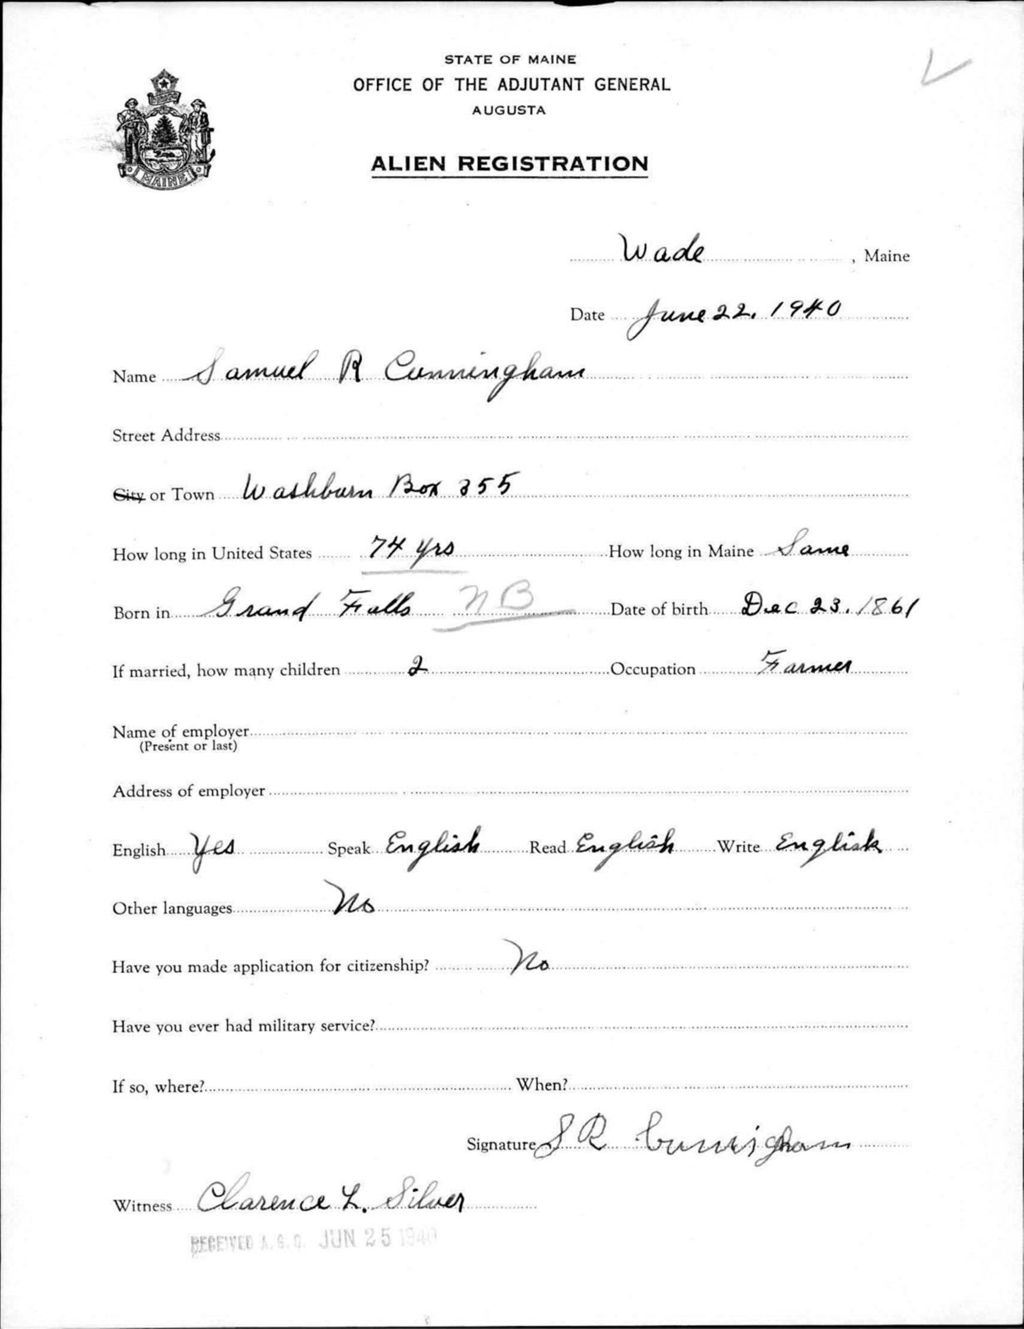 STATE OF MAINE
OFFICE OF THE ADJUTANT GENERAL
AUGUSTA
ALIEN REGISTRATION
MAINE
Wade, Maine
Date June 22, 1940
Name Samuel R Cunningham
Street Address
City or Town Washburn Box 355
How long in United States 74 yrs How long in Maine Same
Born in Grand Falls NB Date of birth Dec 23, 1861
If married, how many children 2 Occupation Farmer
Name of employer
(Present or last)
Address of employer
English Yes Speak English Read English Write English
Other languages No
Have you made application for citizenship? No
Have you ever had military service?
If so, where? When?
Signature S R Cunnigham
Witness Clarence L. Silver
RECEIVED A.G.O. JUN 25 1940